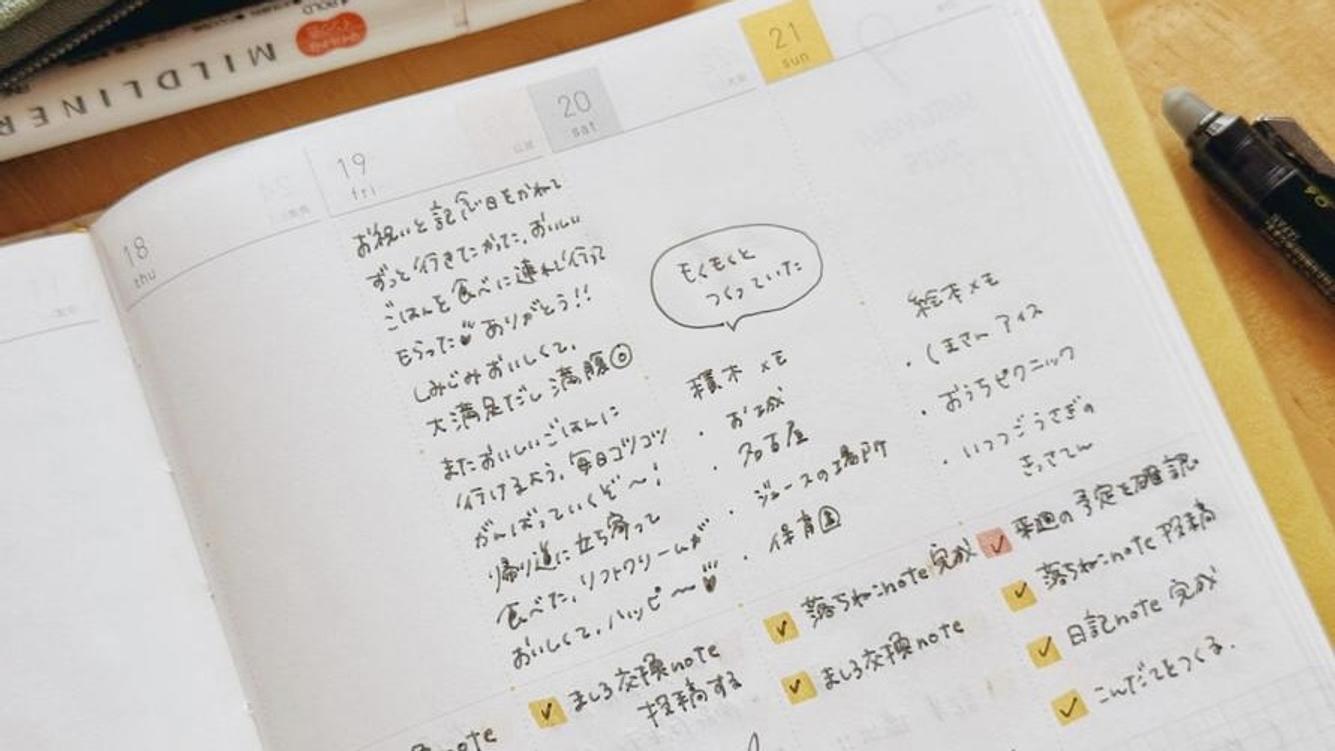 MILDLINER
BOLD
18
thu
19
fri
お祝いと記念日をかねて
ずっと行きたかった、おいしい
ごはんを食べに連れて行って
もらった ありがとう!!
しみじみおいしくて、
大満足だし満腹◎
またおいしいごはんに
行けるよう、毎日コツコツ
がんばっていくぞ〜!
帰り道に立ち寄って
食べた、ソフトクリームが
おいしくて、ハッピ〜
note
ましろ交換note
投稿する
20
sat
もくもくと
つくっていた
積木メモ
・お城
・名古屋
・ジュースの場所
・保育園
落ちねこnote完成
ましろ交換note
21
sun
絵本メモ
・くまさんアイス
・おうちピクニック
・いつつごうさぎの
きっさてん
来週の予定を確認
落ちねこnote投稿
日記note完成
こんだてをつくる.